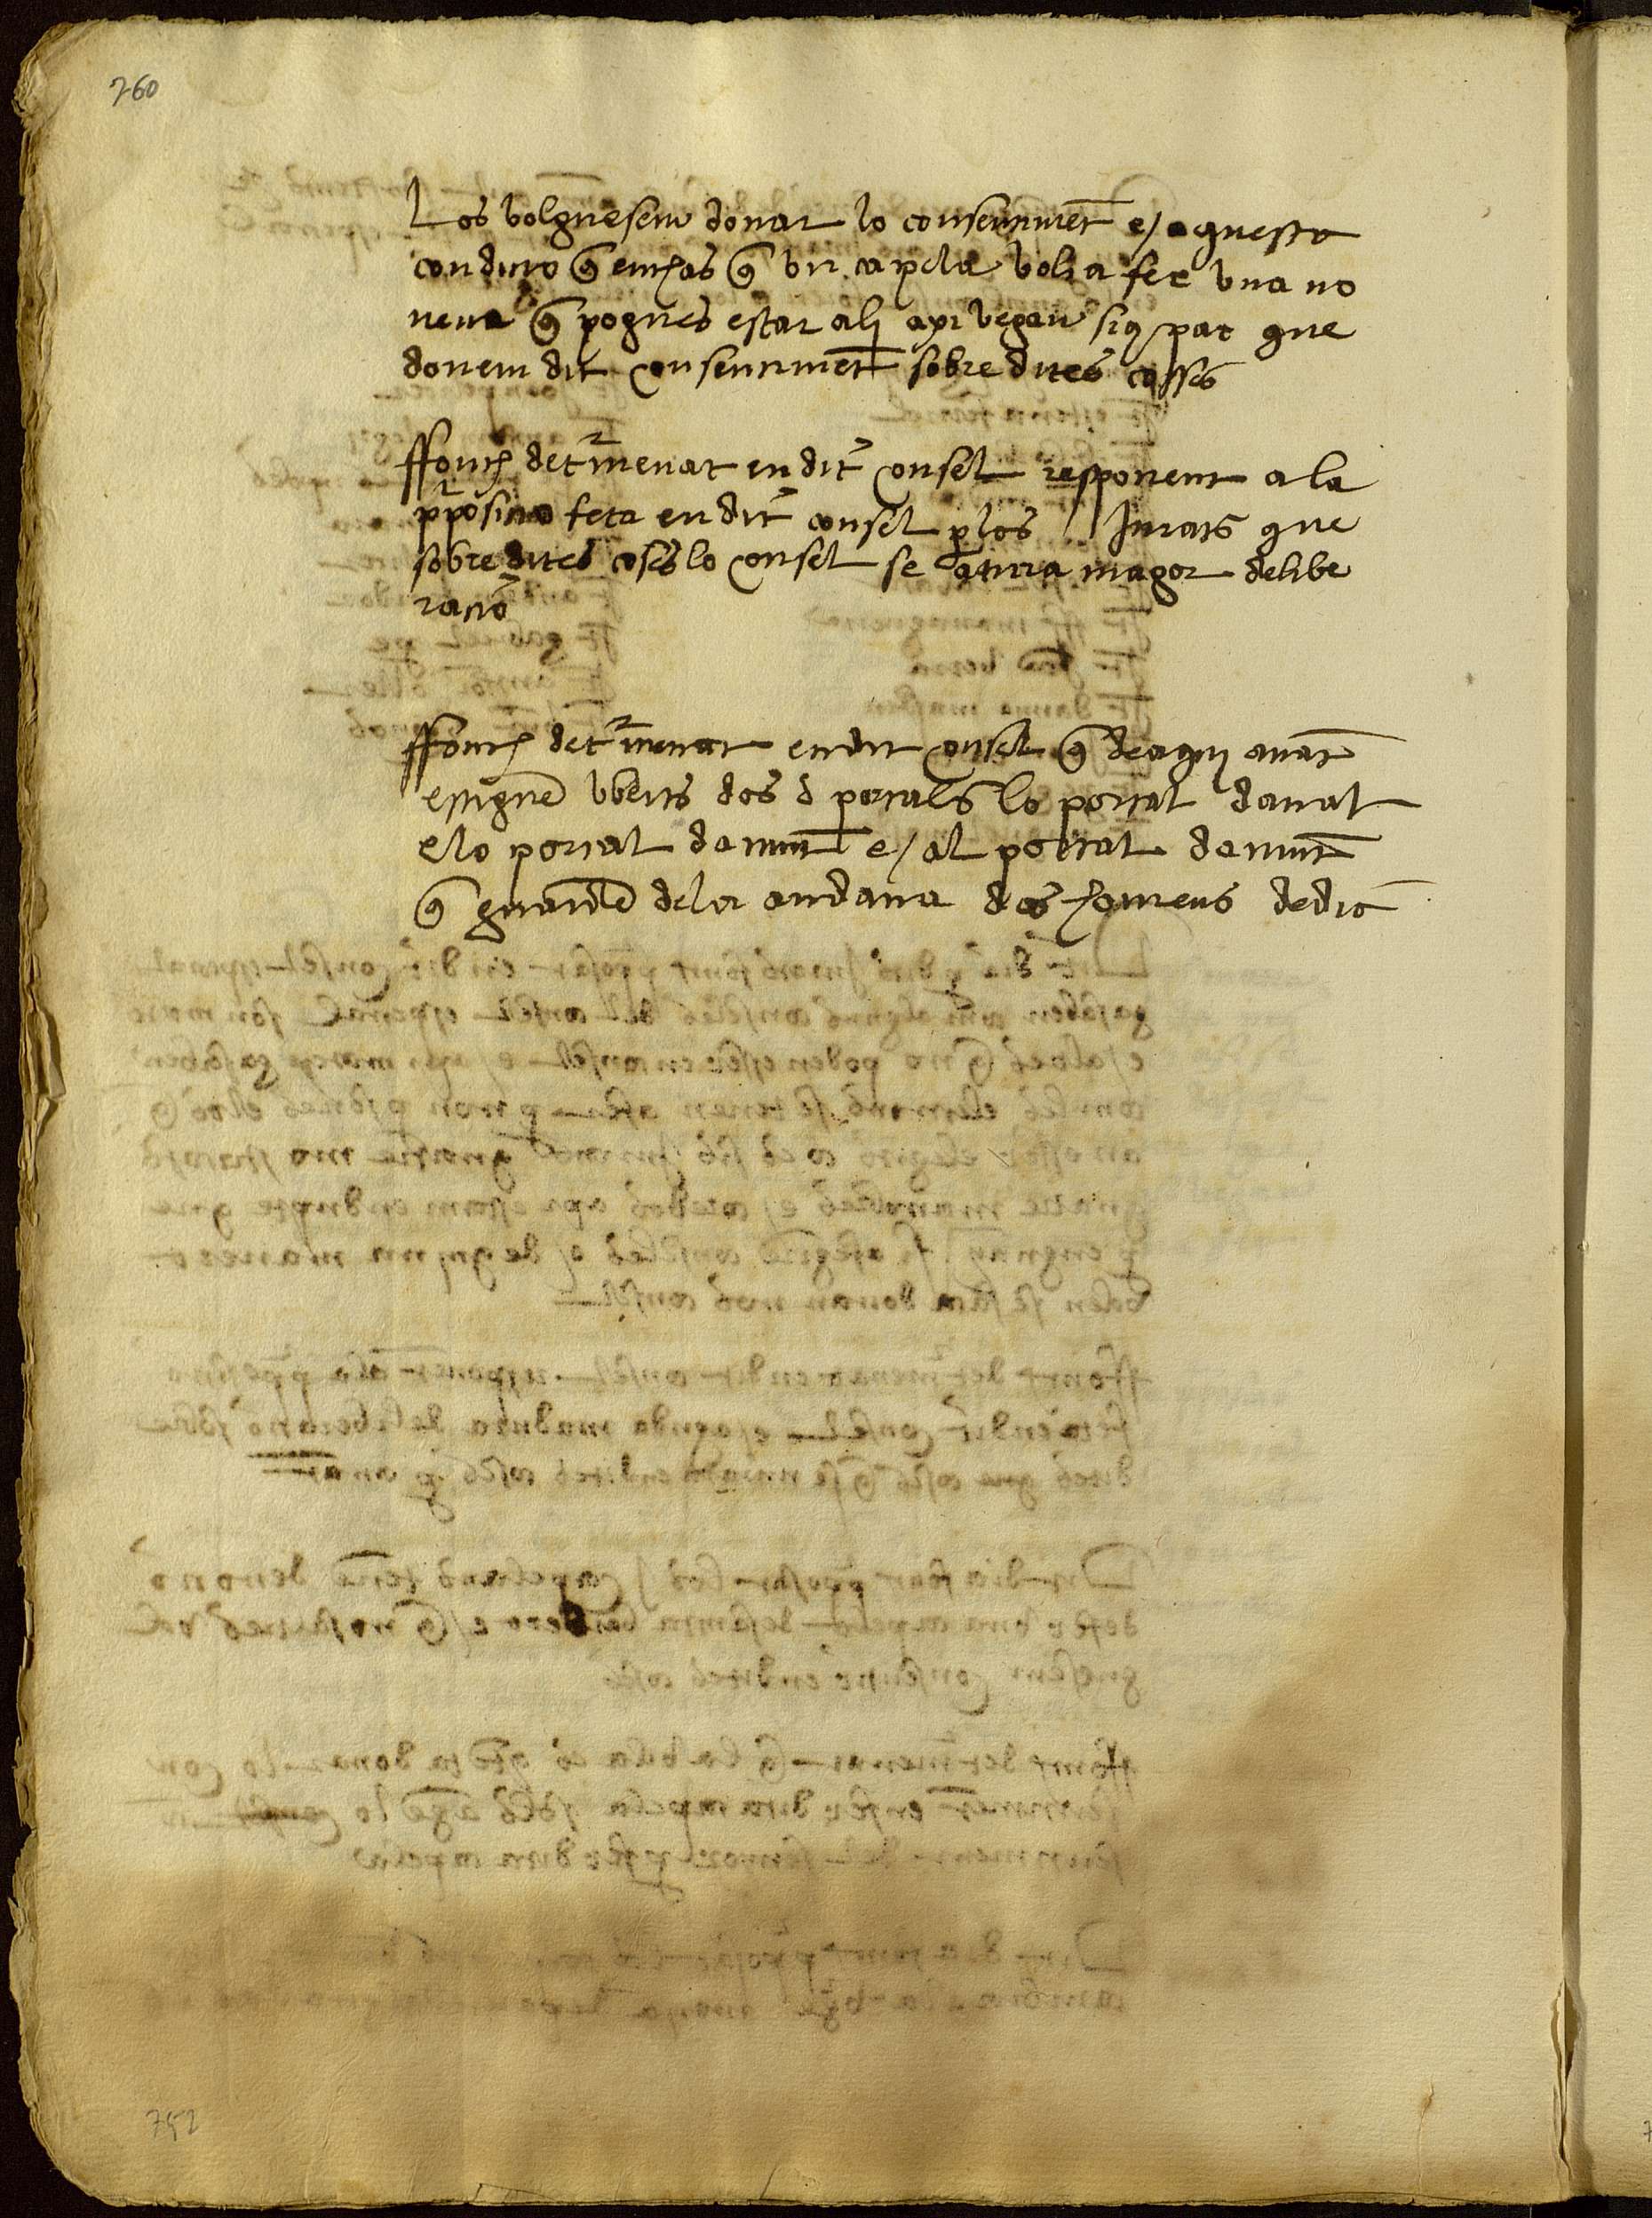 260
Los volguesem donar lo consentimēt e/ aquesta
condicio q̄ en cas q̄ vn capela volia fer vna no
vena q̄ pogues estar ali axi vegau si9 par que
donem dit consentiment sobre dites cosses
ffonch det̄menat en dit̄ consel responent a la
p̄posicio feta en dit̄ consel p̱ los Jurats que
sobre dites coses lo consel se atura magor delibe
racio
ffonch det̄menat en dit consel q̄ de aqui auāt
estiguē vberts dos d portals lo portal daual
e lo portal damūt e/ al portal damūt
q̄ guardē de la andana dos homens de dit̄
752